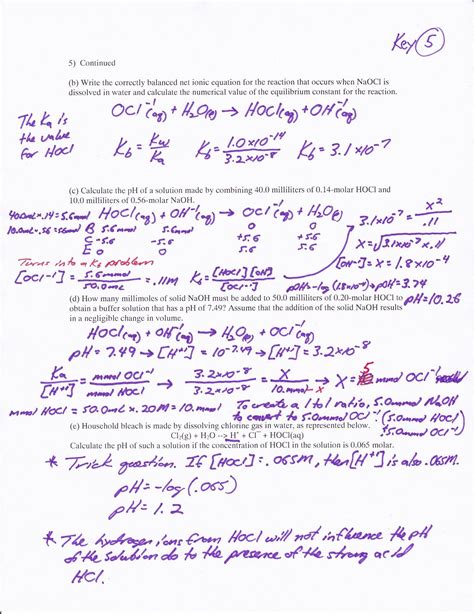 Key 5
5) Continued
(b) Write the correctly balanced net ionic equation for the reaction that occurs when NaOCl is
dissolved in water and calculate the numerical value of the equilibrium constant for the reaction.
OCl⁻¹(aq) + H₂O(l) → HOCl(aq) + OH⁻¹(aq)
The Ka is
the value
for HOCl
Kb = Kw/Ka Kb = 1.0x10⁻¹⁴/3.2x10⁻⁸ Kb = 3.1x10⁻⁷
(c) Calculate the pH of a solution made by combining 40.0 milliliters of 0.14-molar HOCl and
10.0 milliliters of 0.56-molar NaOH.
40.0mL x .14 = 5.6mmol HOCl(aq) + OH⁻¹(aq) → OCl⁻¹(aq) + H₂O(l)
10.0mL x .56 = 5.6mmol B 5.6 5.6 0 0
C -5.6 -5.6 +5.6 +5.6
E 0 0 5.6 5.6
3.1x10⁻⁷ = x²/.11
x = √3.1x10⁻⁷ x .11
[OH⁻¹] = x = 1.8x10⁻⁴
Turns into a Kb problem
[OCl⁻¹] = 5.6mmol/50.0mL = .11M Kb = [HOCl][OH⁻]/[OCl⁻¹] pOH = -log(1.8x10⁻⁴) pOH = 3.74
pH = 10.26
(d) How many millimoles of solid NaOH must be added to 50.0 milliliters of 0.20-molar HOCl to
obtain a buffer solution that has a pH of 7.49? Assume that the addition of the solid NaOH results
in a negligible change in volume.
HOCl(aq) + OH⁻¹(aq) → H₂O(l) + OCl⁻¹(aq)
pH = 7.49 → [H⁺¹] = 10⁻⁷·⁴⁹ → [H⁺¹] = 3.2x10⁻⁸
Ka/[H⁺¹] = mmol OCl⁻¹/mmol HOCl → 3.2x10⁻⁸/3.2x10⁻⁸ = x/10.mmol-x → x = 5 mmol OCl⁻¹ needed
mmol HOCl = 50.0mL x .20M = 10.mmol → To create a 1 to 1 ratio, 5.0mmol NaOH
to convert to 5.0mmol OCl⁻¹ (5.0mmol HOCl)
(e) Household bleach is made by dissolving chlorine gas in water, as represented below.
Cl₂(g) + H₂O --> H⁺ + Cl⁻ + HOCl(aq)
Calculate the pH of such a solution if the concentration of HOCl in the solution is 0.065 molar.
* Trick question. If [HOCl] = .065M, then [H⁺] is also .065M.
pH = -log(.065)
pH = 1.2
* The hydrogen ions from HOCl will not influence the pH
of the solution do to the presence of the strong acid
HCl.